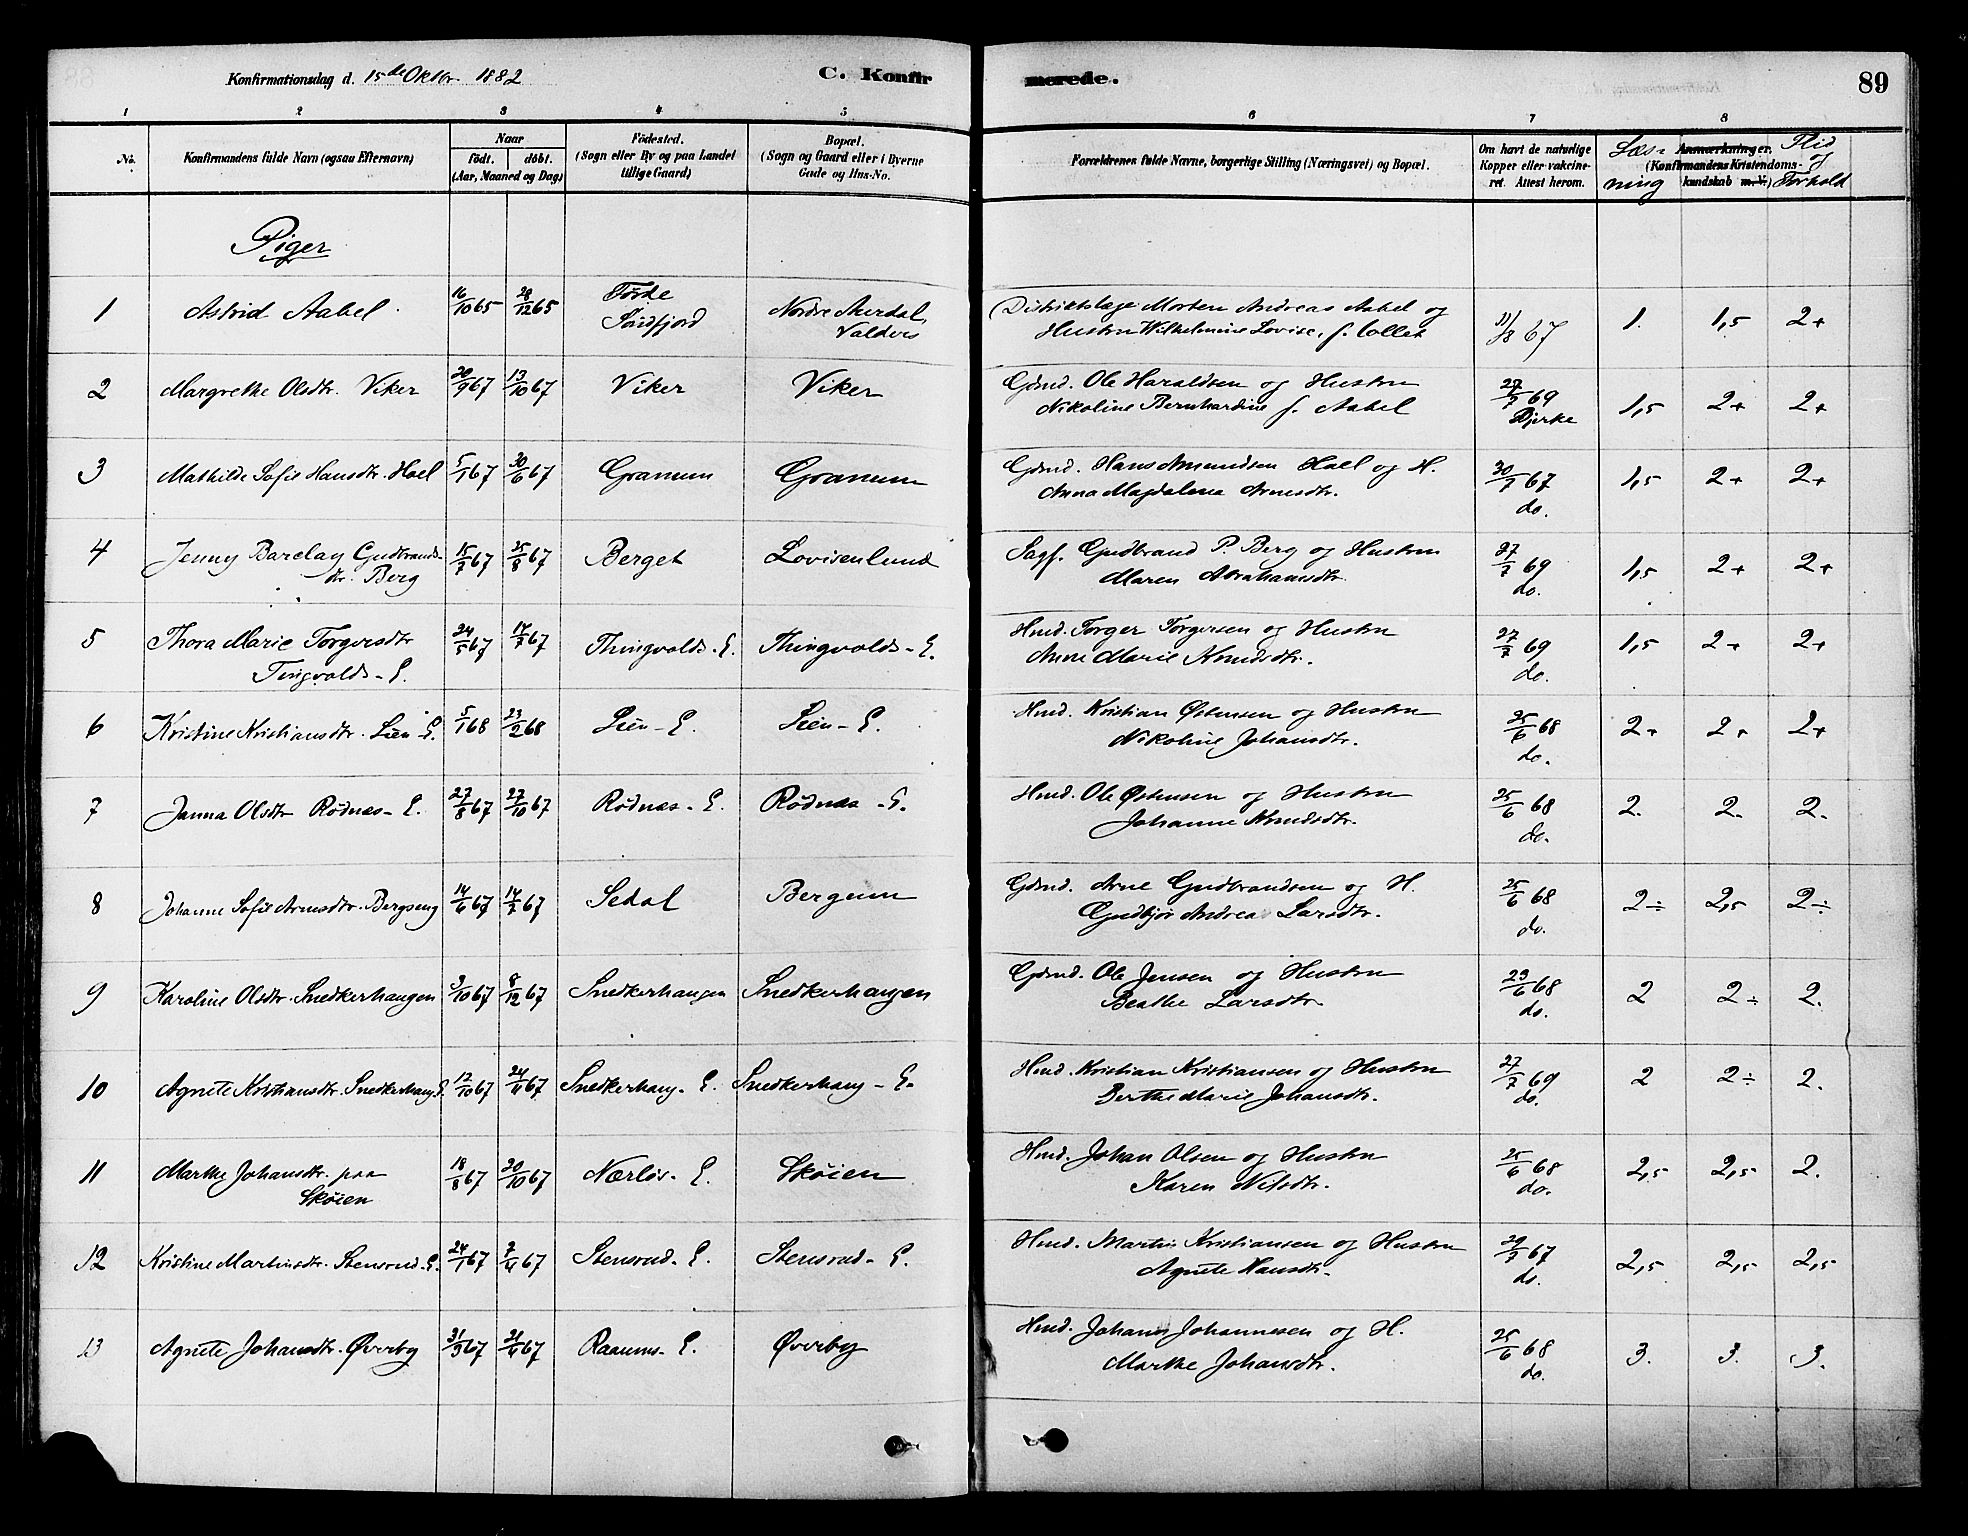 Konfirmationsdag d. 15de Oktbr. 1882 C. Konfirmerede. 89
1 2 3 4 5 6 7 8
No. Konfirmandens fulde Navn (ogsaa Efternavn) Naar födt. döbt. (Aar, Maaned og Dag) Födested. (Sogn eller By og paa Landet tillige Gaard) Bopæl. (Sogn og Gaard eller i Byerne Gade og Hus-No. Forældrenes fulde Navne, borgerlige Stilling (Næringsvei) og Bopæl. Om havt de naturlige Kopper eller vakcineret. Attest herom. Læsning Anmærkninger. (Konfirmandens Kristendomskundskab m. V.) Flid og Forhold
Piger
1 Astrid Aabel 16/10 65 28/12 65 Førde Søndfjord Nordre Aurdal, Valders Distriktslæge Morten Andreas Aabel og Hustru Wilhelmine Lovise, f. Collet 11/8 67 1. 1,5 2+
2 Margrethe Olsdtr. Viker 20/9 67 13/10 67 Viker Viker Gdmd. Ole Haraldsen og Hustru Nikoline Bernhardine f. Aabel 27/7 69 Bjerke 1,5 2+ 2+
3 Mathilde Sofie Hansdtr. Hoel 5/1 67 30/6 67 Granum Granum Gdmd. Hans Amundsen Hoel og H. Anna Magdalena Arnesdtr. 30/7 67 do. 1,5 2+ 2+
4 Jenny Barclay Gudbrandsdtr. Berg 15/7 67 25/8 67 Berget Lovisenlund Sagf. Gudbrand P. Berg og Hustru Maren Abrahamsdtr. 27/7 69 do. 1,5 2+ 2+
5 Thora Marie Torgersdtr Tingvolds-E. 24/5 67 14/7 67 Thingvolds-E. Thingvolds-E. Hmd. Torger Torgersen og Hustru Anne Marie Knudsdtr. 27/7 69 do. 1,5 2+ 2+
6 Kristine Kristiansdtr. Lien-E. 5/1 68 23/2 68 Lien-E. Lien-E. Hmd. Kristian Østensen og Hustru Nikoline Johansdtr. 25/6 68 do. 2+ 2+ 2+
7 Janna Olsdtr Rødnæs-E. 27/8 67 27/10 67 Rødnæs-E. Rødnæs-E. Hmd. Ole Østensen og Hustru Johanne Knudsdtr. 25/6 68 do. 2. 2. 2.
8 Johanne Sofie Arnesdtr. Bergseng 14/6 67 14/7 67 Sedal Bergum Gdmd. Arne Gudbrandsen og H. Gudbjør Andrea Larsdtr. 25/6 68 do. 2÷ 2,5 2÷
9 Karoline Olsdtr. Snedkerhaugen 3/10 67 8/12 67 Snedkerhaugen Snedkerhaugen Gdmd. Ole Jensen og Hustru Beathe Larsdtr 23/6 68 do. 2 2÷ 2.
10 Agnete Kristiansdtr. Snedkerhaug-E. 12/10 67 24/11 67 Snedkerhaug-E. Snedkerhaug-E. Hmd. Kristian Kristiansen og Hustru Berthe Marie Johansdtr. 27/7 69 do. 2 2÷ 2.
11 Marthe Johansdtr. paa Skøien 18/8 67 20/10 67 Nærløs-E. Skøien Hmd. Johan Olsen og Hustru Karen Nilsdtr. 25/6 68 do. 2,5 2,5 2.
12 Kristine Martinsdtr. Stensrud-E. 24/1 67 7/4 67 Stensrud-E. Stensrud-E. Hmd. Martin Kristiansen og Hustru Agnete Hansdtr. 29/7 67 do. 2,5 2,5 2,5
13 Agnete Johansdtr. Øverby 31/3 67 21/4 67 Raanms-E. Øverby Hmd. Johan Johannesen og H. Marthe Johansdtr. 25/6 68 do. 3. 3. 3.